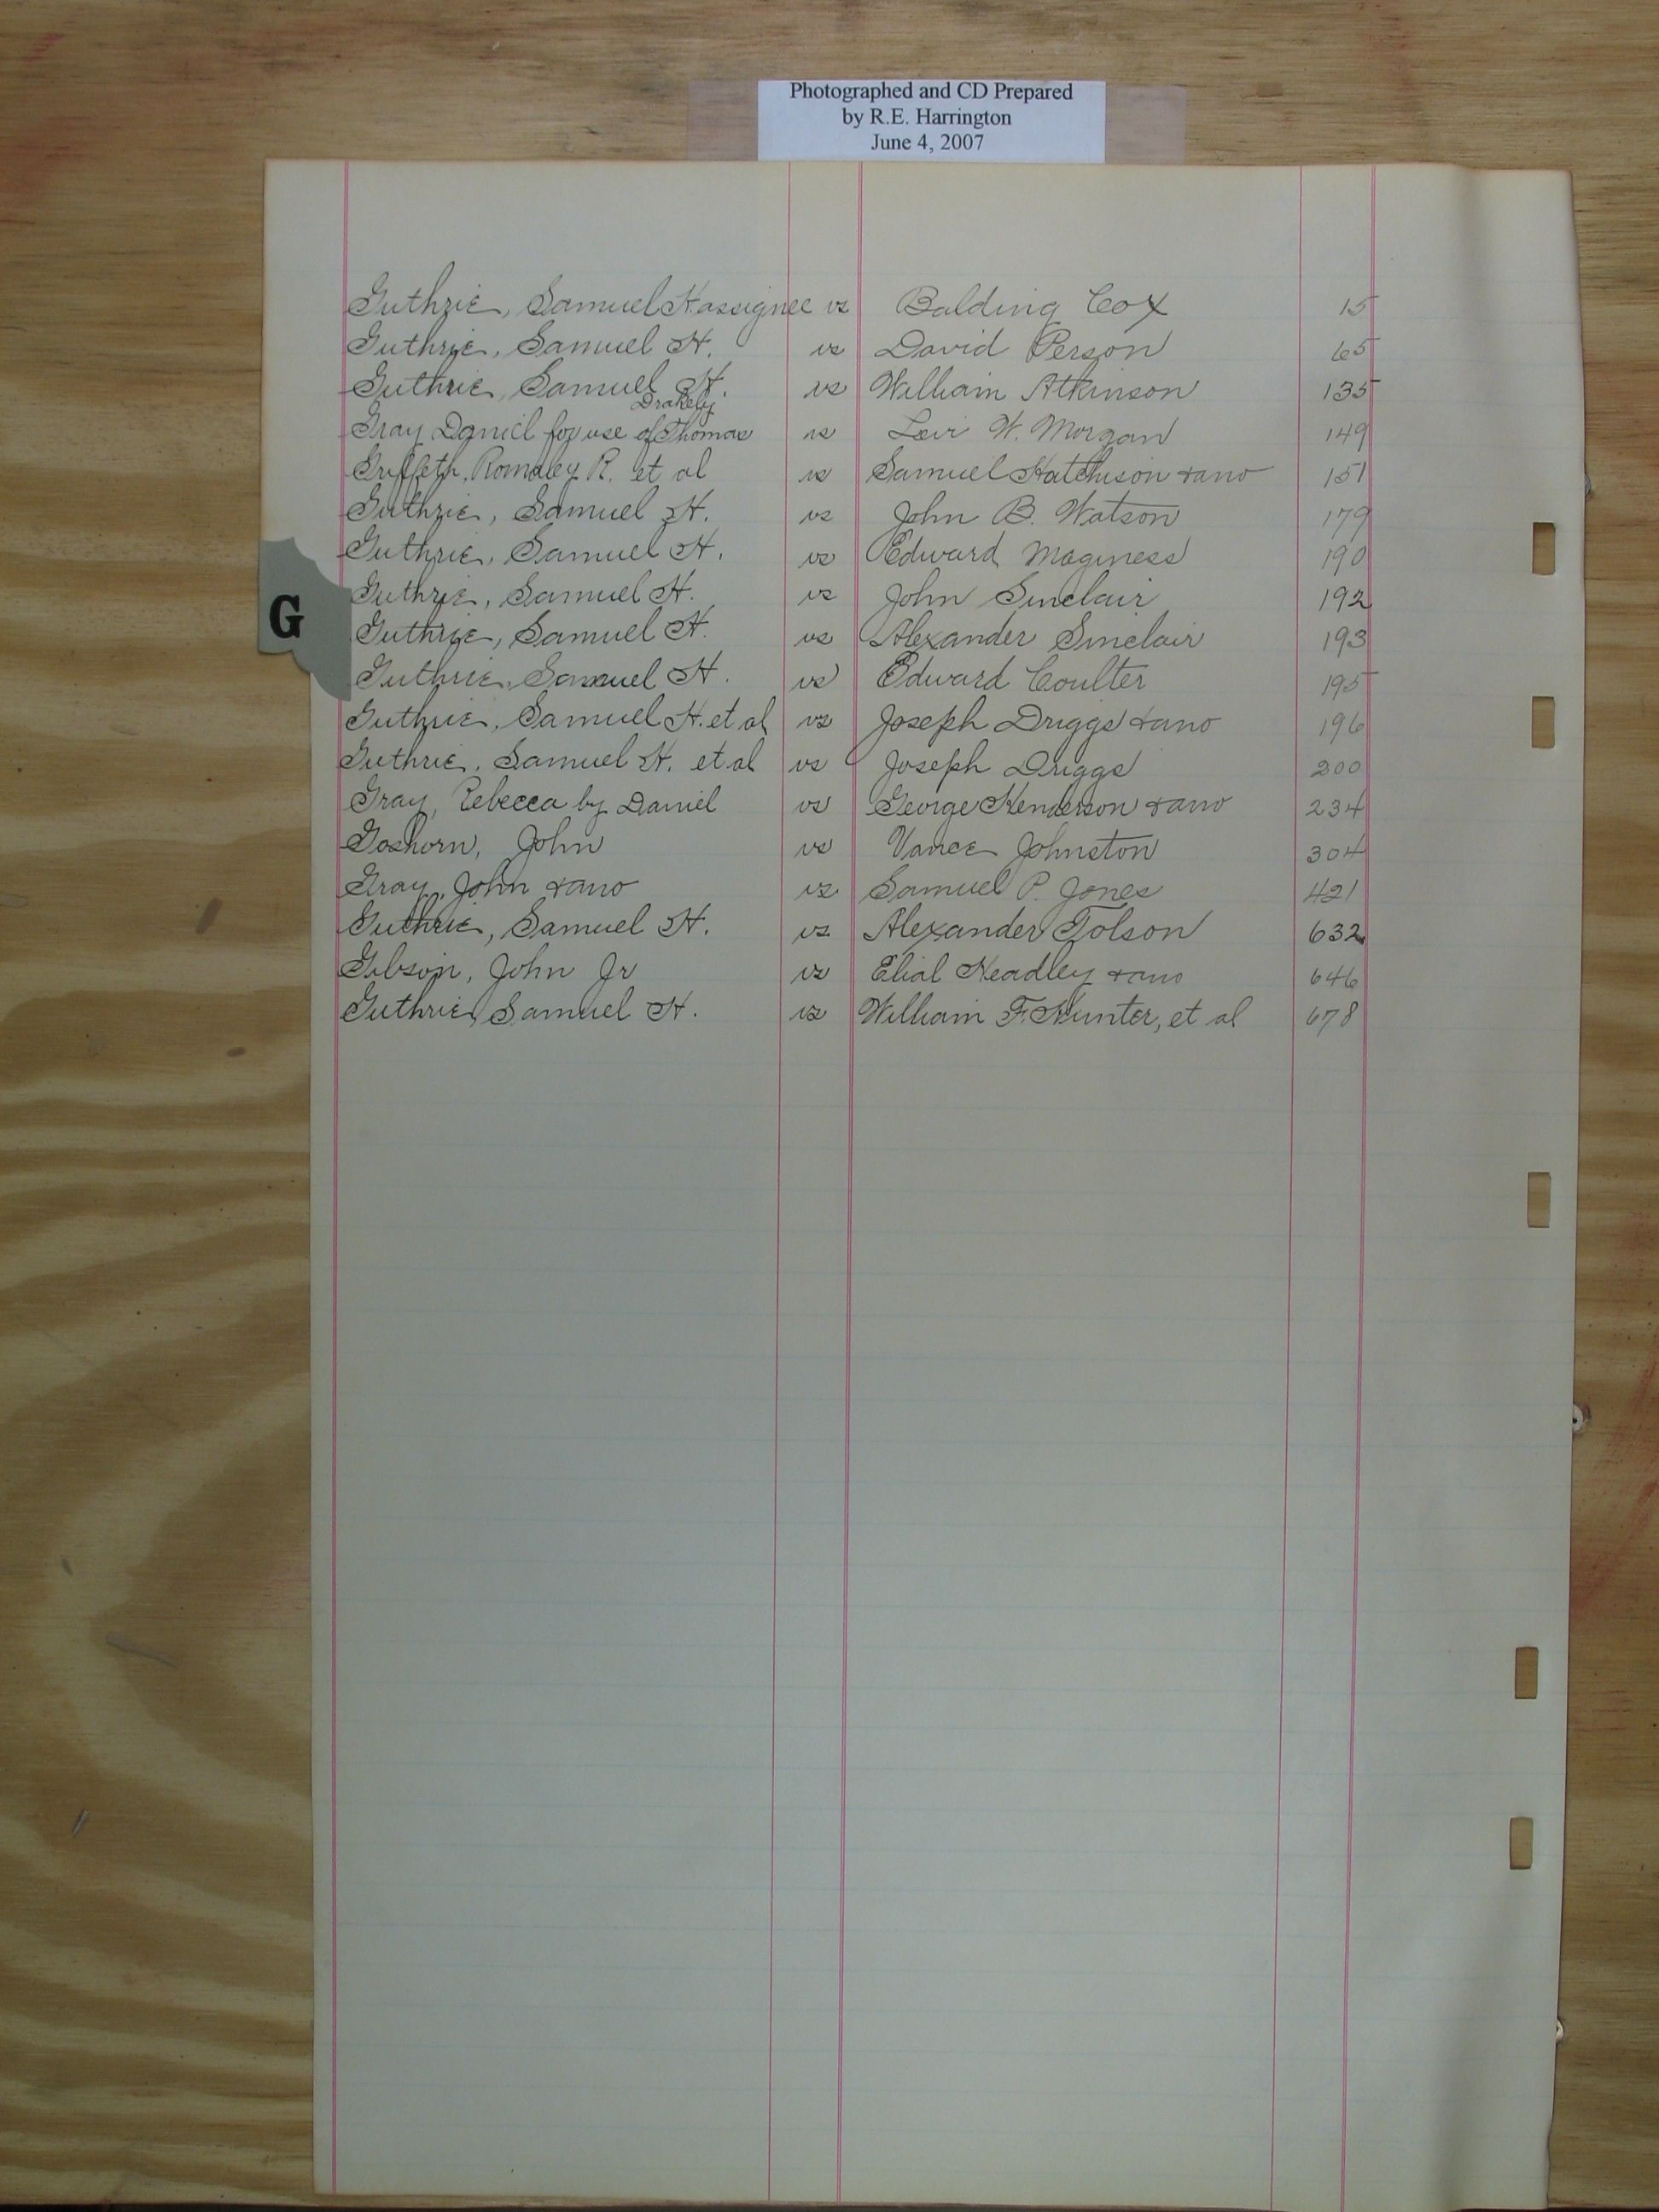 Photographed and CD Prepared
by R.E. Harrington
June 4, 2007
Guthrie, Samuel H assignee vs Balding Cox 15
Guthrie, Samuel H. vs David Person 65
Guthrie, Samuel H. vs William Atkinson 135
Drakely
Gray Daniel for use of Thomas vs Levi W. Morgan 149
Griffeth, Romaley R. et al vs Samuel Hatchison & ano 151
Guthrie, Samuel H. vs John B. Watson 179
Guthrie, Samuel H. vs Edward Maginess 190
Guthrie, Samuel H. vs John Sinclair 192
G
Guthrie, Samuel H. vs Alexander Sinclair 193
Guthrie, Samuel H. vs Edward Coulter 195
Guthrie, Samuel H. et al vs Joseph Driggs & ano 196
Guthrie, Samuel H. et al vs Joseph Driggs 200
Gray, Rebecca by Daniel vs George Henderson & ano 234
Goshorn, John vs Vance Johnston 304
Gray, John & ano vs Samuel P. Jones 421
Guthrie, Samuel H. vs Alexander Tolson 632
Gibson, John Jr vs Elial Headley & ano 646
Guthrie, Samuel H. vs William F. Hunter, et al 678